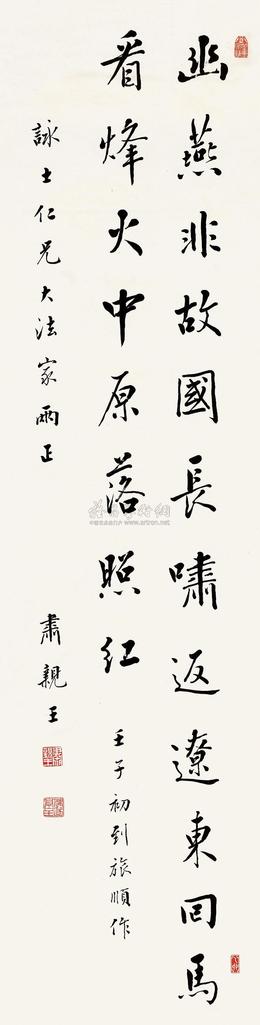 幽燕非故國長嘯返遼東回馬
看烽火中原落照紅
壬子初到旅順作
詠士仁兄大法家兩正
肅親王
www.artron.net